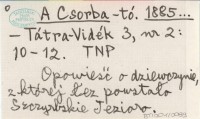 A Csorba-tó. 1885...
- Tátra-Vidék 3, nr 2:
10-12. TNP
Opowieść o dziewczynie,
z której łez powstało
Szczyrbskie Jezioro.